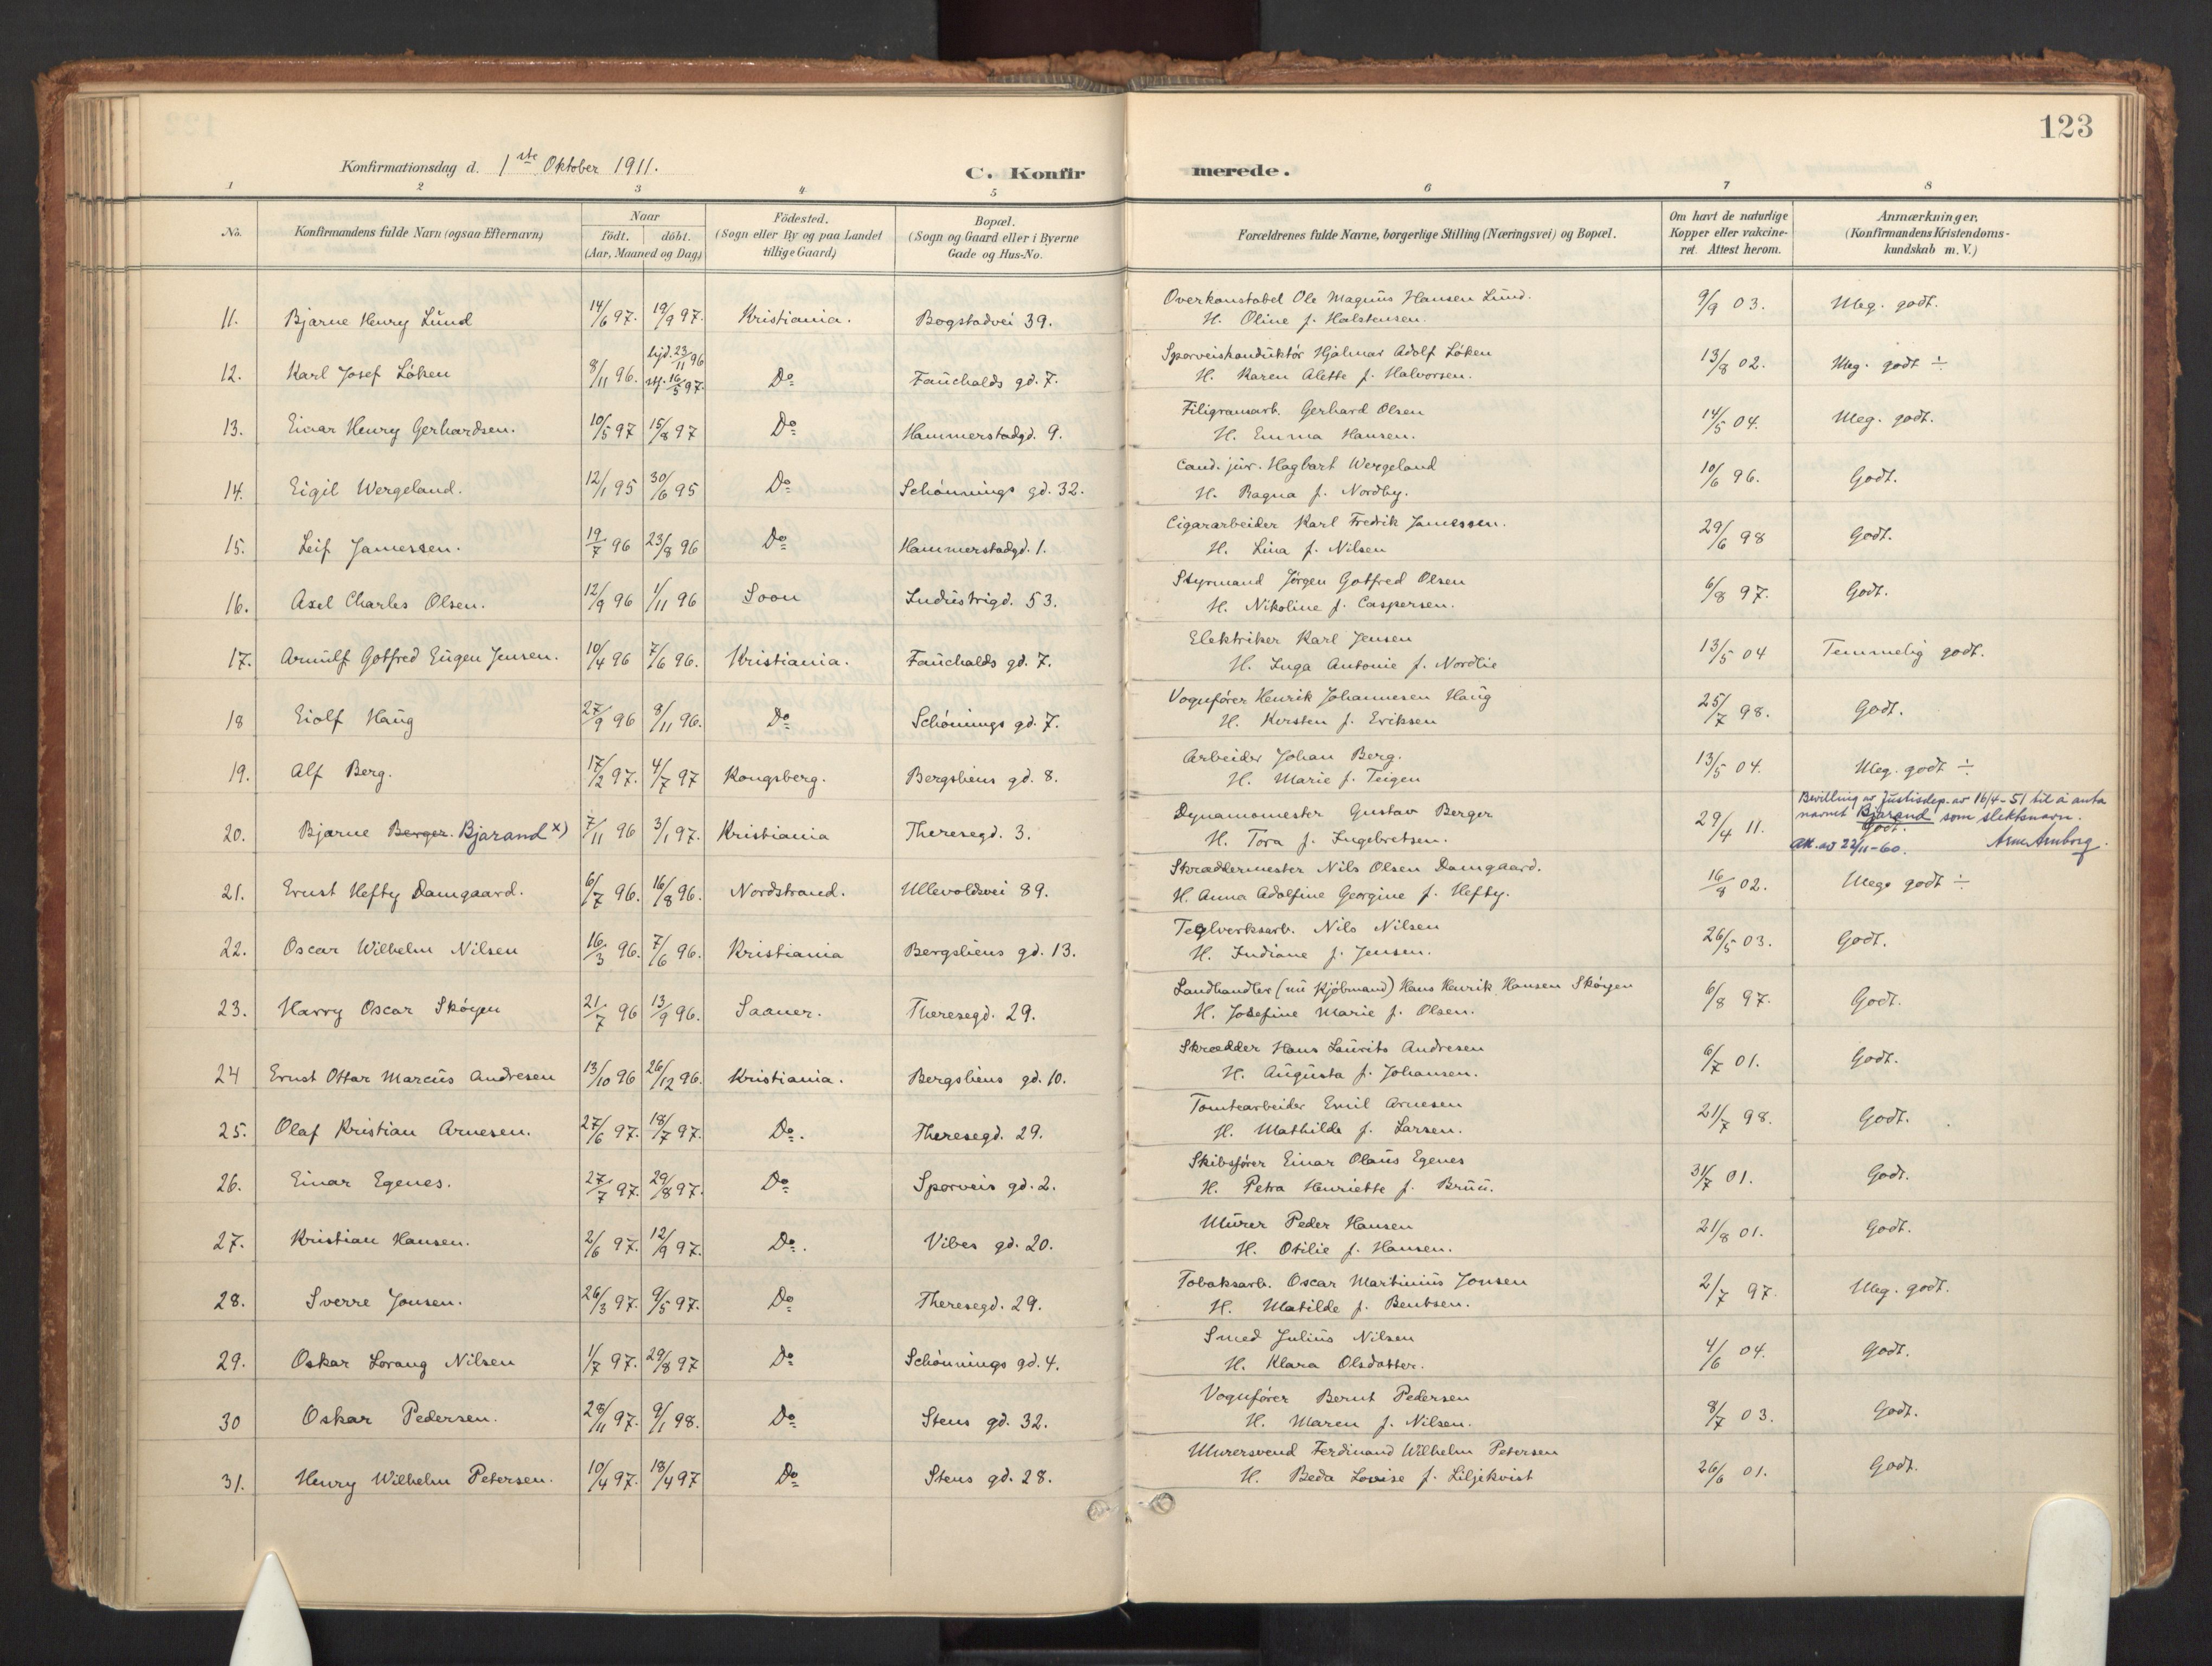 123
Konfirmationsdag d. 1ste Oktober 1911.
C. Konfirmerede.
1 2 3 4 5 6 7 8
No.
Konfirmandens fulde Navn (ogsaa Efternavn)
Naar
födt. döbt.
(Aar, Maaned og Dag)
Födested.
(Sogn eller By og paa Landet
tillige Gaard)
Bopæl.
(Sogn og Gaard eller i Byerne
Gade og Hus-No.
Forældrenes fulde Navne, borgerlige Stilling (Næringsvei) og Bopæl.
Om havt de naturlige
Kopper eller vakcine-
ret. Attest herom.
Anmærkninger.
(Konfirmandens Kristendoms-
kundskab m. V.)
Overkonstabel Ole Magnus Hansen Lund.
11. Bjarne Henry Lund 14/6 97. 19/9 97. Kristiania. Bogstadvei 39. H. Oline f. Halstensen. 9/9 03. Meg. godt.
Sporveiskonduktör Hjalmar Adolf Löken
12. Karl Josef Löken 8/11 96. hjd. 23/11 96 stf. 16/5 97. Do Fauchalds gd. 7. H. Karen Alette f. Halvorsen. 13/8 02. Meg. godt ÷
Filigransarb. Gerhard Olsen
13. Einar Henry Gerhardsen. 10/5 97 15/8 97 Do Hammerstadgd. 9. H. Emma Hansen. 14/5 04. Meg. godt.
Cand. jur. Hagbart Wergeland
14. Eigil Wergeland. 12/1 95 30/6 95 Do Schönnings gd. 32. H. Ragna f. Nordby. 10/6 96. Godt.
Cigararbeider Karl Fredrik Jamessen.
15. Leif Jamessen. 19/7 96 23/8 96 Do Hammerstadgd. 1. H. Lina f. Nilsen 29/6 98 Godt.
Styrmand Jörgen Gotfred Olsen
16. Axel Charles Olsen. 12/9 96 1/11 96 Soon Industrigd. 53. H. Nikoline f. Caspersen. 6/8 97. Godt.
Elektriker Karl Jensen
17. Arnulf Gotfred Eugen Jensen. 10/4 96 7/6 96. Kristiania. Fauchalds gd. 7. H. Inga Antonie f. Nordlie 13/5 04 Temmelig godt.
Vognförer Henrik Johannesen Haug
18 Eiolf Haug 27/9 96 8/11 96. Do Schönings gd. 7. H. Kersten f. Eriksen 25/7 98. Godt.
Arbeider Johan Berg.
19. Alf Berg. 17/2 97. 4/7 97 Kongsberg. Bergsliens gd. 8. H. Marie f. Teigen 13/5 04. Meg. godt ÷
Dynamomester Gustav Berger
20. Bjarne Berger. Bjarand x) 7/11 96 3/1 97. Kristiania Theresegd. 3. H. Tora f. Ingebretsen. 29/4 11. Godt.
Bevilling av Justisdep. av 16/4-51 til å anta
navnet Bjarand som slektsnavn.
Ak. av 22/11-60.
Skræddermester Nils Olsen Damgaard.
21. Ernst Hefty Damgaard. 6/7 96. 16/8 96. Nordstrand. Ullevoldsvei 89. H. Anna Adolfine Georgine f. Hefty. 16/8 02. Meget godt ÷
Teglverksarb. Nils Nilsen
22. Oscar Wilhelm Nilsen 16/3 96. 7/6 96. Kristiania Bergsliens gd. 13. H. Indiane f. Jensen. 26/5 03. Godt.
Landhandler (nu Kjöbmand) Hans Henrik Hansen Sköyen
23. Harry Oscar Sköyen 21/7 96 13/9 96. Saaner. Theresegd. 29. H. Josefine Marie f. Olsen. 6/8 97. Godt.
Skrædder Hans Laurits Andresen
24 Ernst Ottar Marcus Andresen 13/10 96 26/12 96. Kristiania. Bergsliens gd. 10. H. Augusta f. Johansen. 6/7 01. Godt.
Tomtearbeider Emil Arnesen
25. Olaf Kristian Arnesen. 27/6 97. 18/7 97. Do. Theresegd. 29. H. Mathilde f. Larsen. 21/7 98. Godt.
Skibsförer Einar Olaus Egenes
26. Einar Egenes. 27/7 97. 29/8 97. Do Sporveis gd. 2. H. Petra Henriette f. Bruu. 31/7 01. Godt.
Murer Peder Hansen
27. Kristian Hansen. 2/6 97. 12/9 97. Do. Vibes gd. 20. H. Otilie f. Hansen. 21/8 01. Godt.
Tobaksarb. Oscar Martinius Jonsen
28. Sverre Jonsen. 26/3 97. 9/5 97. Do Theresegd. 29. H. Matilde f. Bentsen. 2/7 97. Meg. godt.
Smed Julius Nilsen
29. Oskar Lorang Nilsen 1/7 97. 29/8 97 Do Schönnings gd. 4. H. Klara Olsdatter. 4/6 04. Godt.
Vognförer Bernt Pedersen
30 Oskar Pedersen. 28/11 97. 9/1 98. Do Stens gd. 32. H. Maren f. Nilsen. 8/7 03. Godt.
Murersvend Ferdinand Wilhelm Petersen
31. Henry Wilhelm Petersen. 10/4 97. 18/4 97 Do Stens gd. 28. H. Beda Lovise f. Liljekvist 26/6 01. Godt.